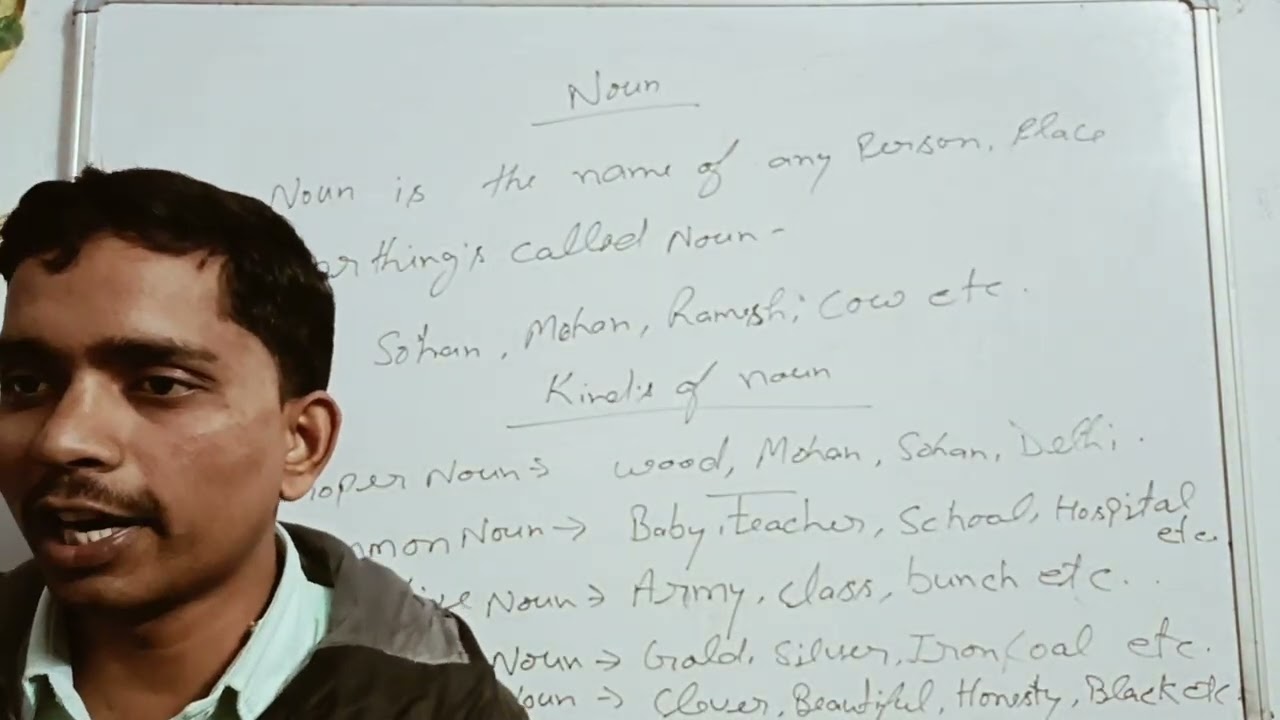 Noun
Noun is the name of any Person, Place
or thing's called Noun -
Sohan, Mohan, Ramesh; Cow etc.
Kind's of noun
oper Noun → wood, Mohan, Sohan, Delhi.
mmon Noun → Baby, teacher, School, Hospital
etc.
ive Noun → Army, class, bunch etc..
Noun → Gold, Silver, Iron, Coal etc.
oun → Clever, Beautiful, Honesty, Black etc.